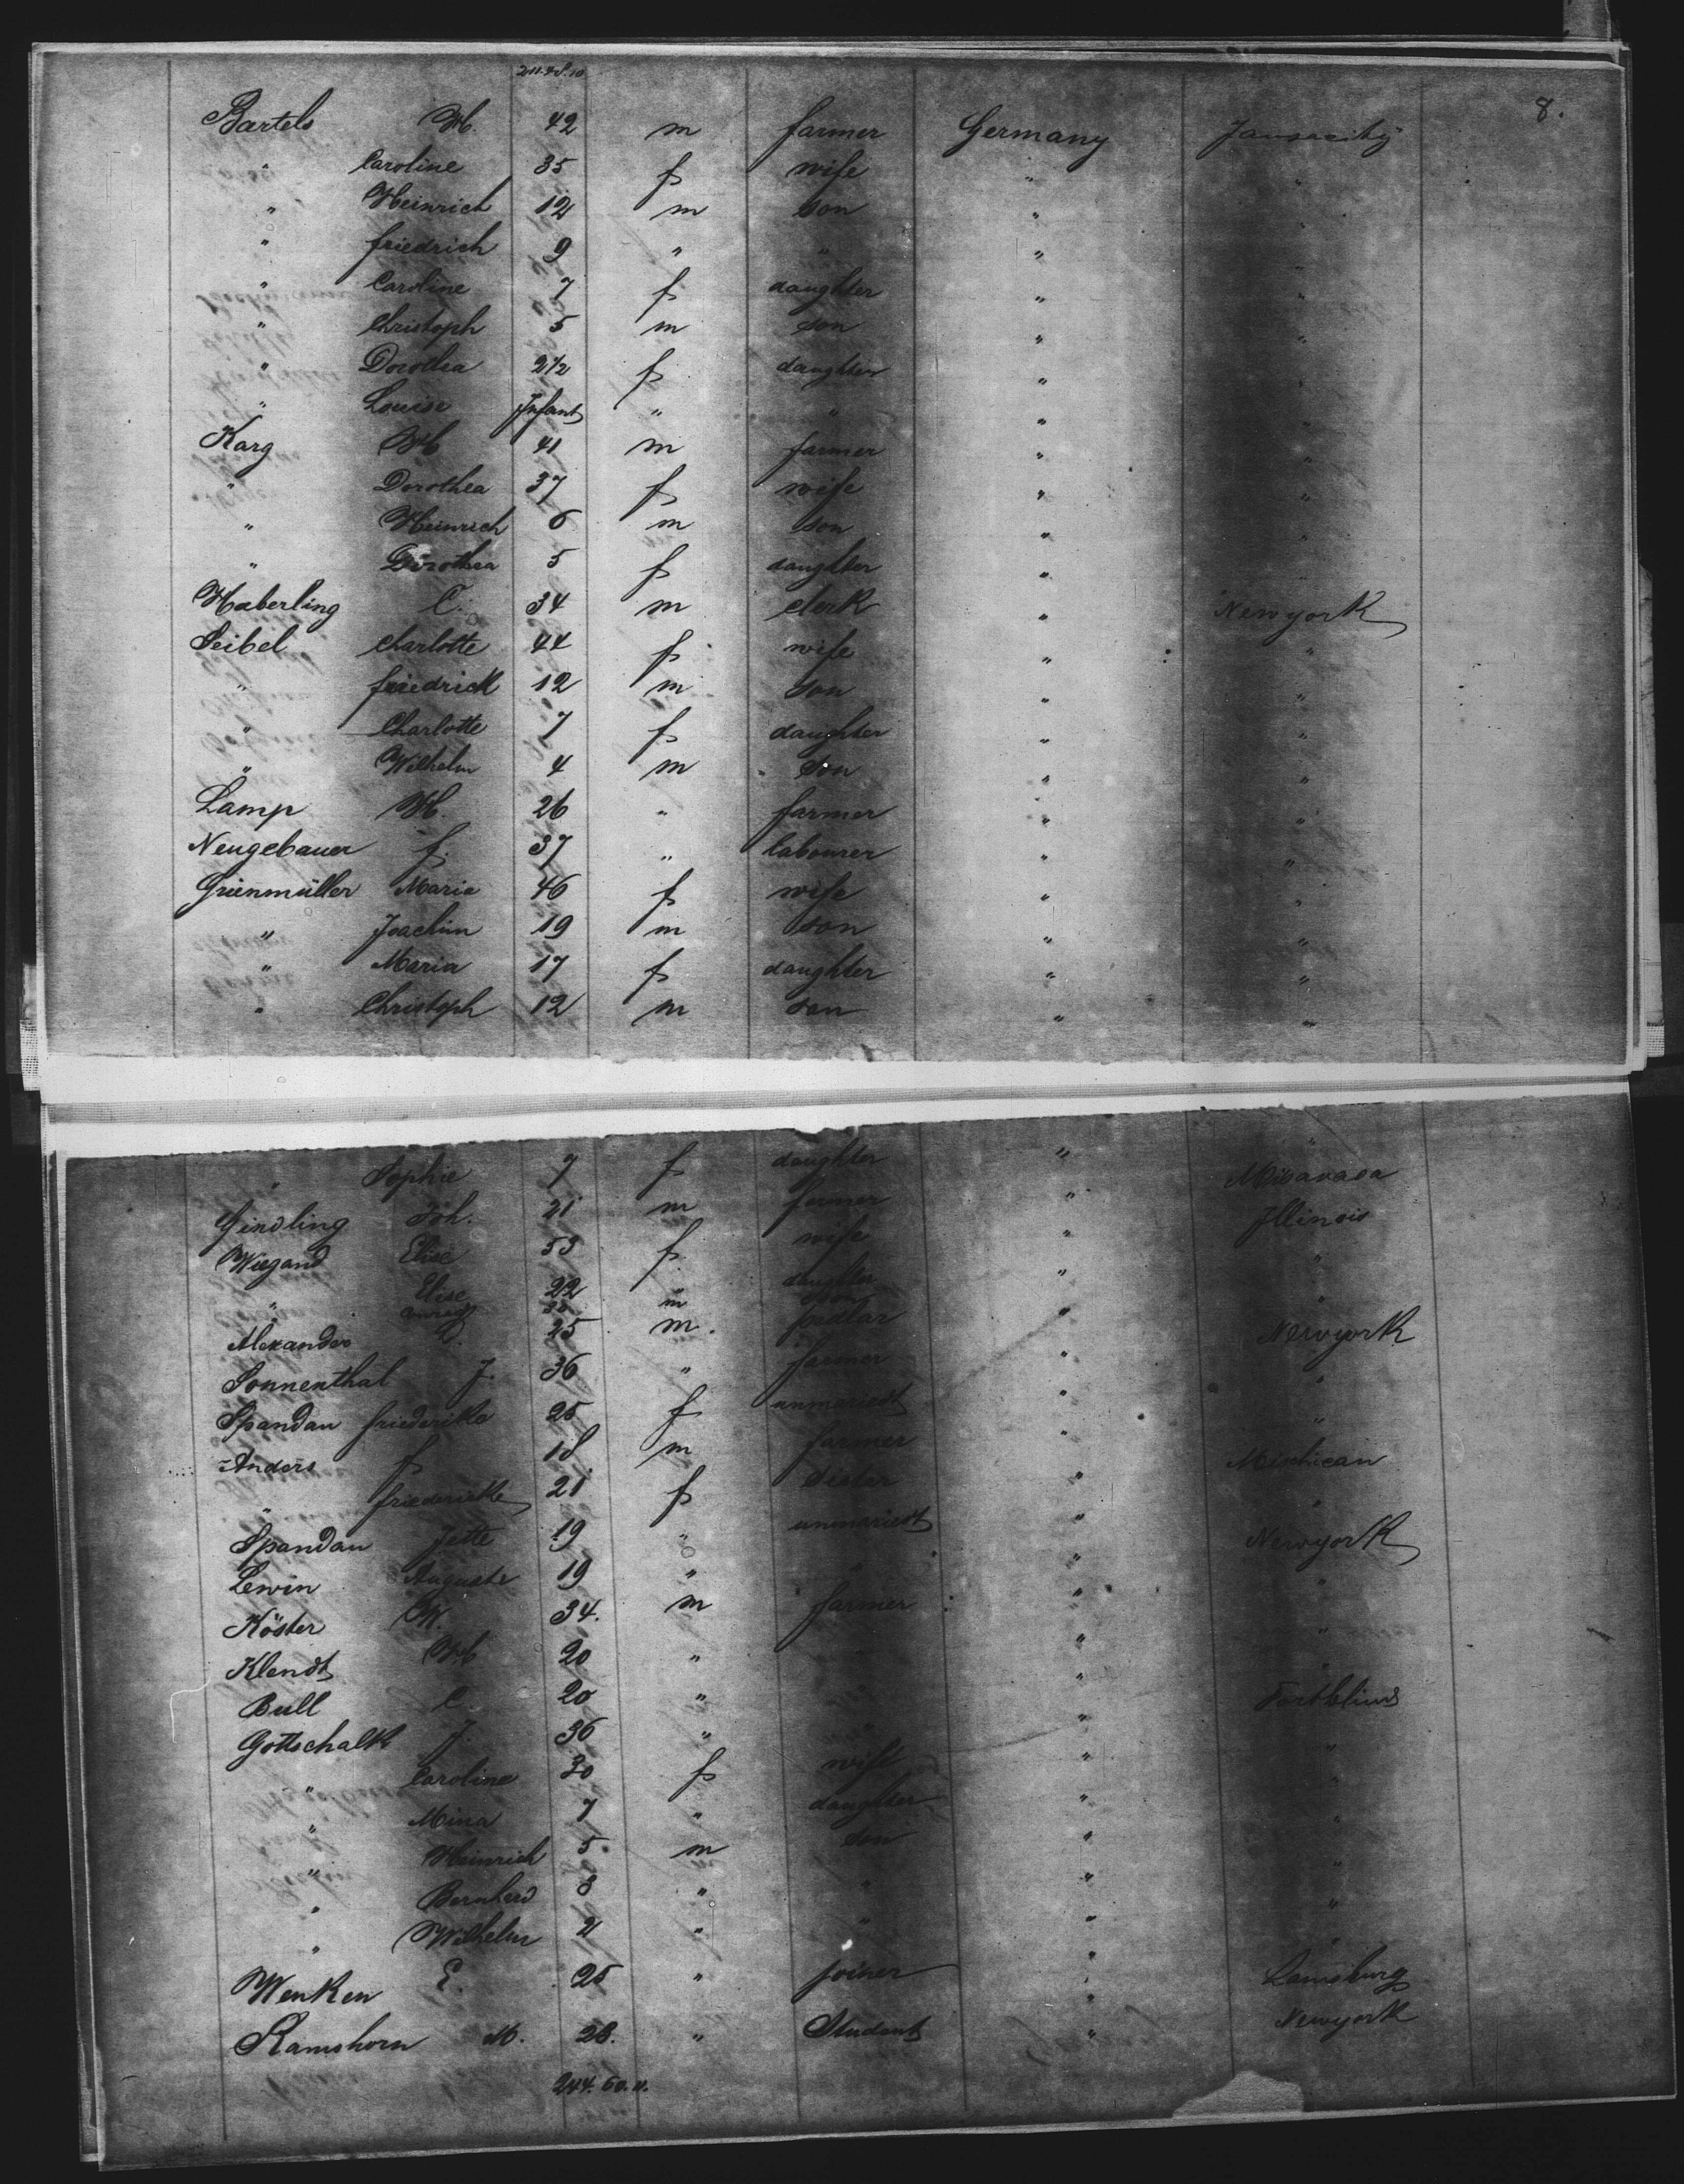 211.48.10
8.
Bartels H. 42 m farmer Germany
" Caroline 35 f wife " "
" Heinrich 12 m son " "
" friedrich 9 " " " "
" Caroline 7 f daughter " "
" Christoph 5 m son " "
" Dorothea 2 1/2 f daughter " "
" Louise Infant " " " "
Karg H 41 m farmer " "
" Dorothea 37 f wife " "
" Heinrich 6 m son " "
" Dorothea 5 f daughter " "
Haberling C. 34 m clerk " Newyork
Seibel Charlotte 44 f wife " "
" friedrich 12 m son " "
" Charlotte 7 f daughter " "
" Wilhelm 4 m son " "
Lamp H. 26 " farmer " "
Neugebauer f. 37 " labourer " "
Grienmüller Maria 46 f wife " "
" Joachim 19 m son " "
" Maria 17 f daughter " "
" Christoph 12 m son " "
" Sophie 7 f daughter " "
Gindling Joh. 21 m farmer "
Wiegand Elise 53 f wife " Illinois
" Elise 22 " daughter " "
m
Alexander 25 m. pedlar " Newyork
Sonnenthal J. 36 " farmer " "
Spandau friederike 25 f unmariedt " "
Anders f 18 m farmer " Michican
" friederike 21 f sister " "
Spandau Jette 19 " unmariedt " Newyork
Lewin Auguste 19 " " " "
Köster W. 34. m farmer " "
Klendt H 20 " " "
Bull C. 20 " "
Gottschalk J. 36 " " "
" Caroline 30 f wife " "
" Mina 7 " daughter " "
" Heinrich 5 m son " "
" Bernherd 3 " " " "
" Wilhelm 2 " " " "
Wenken E. 25 " joiner "
Ramshorn M. 28. " Student " Newyork
244.60.11.